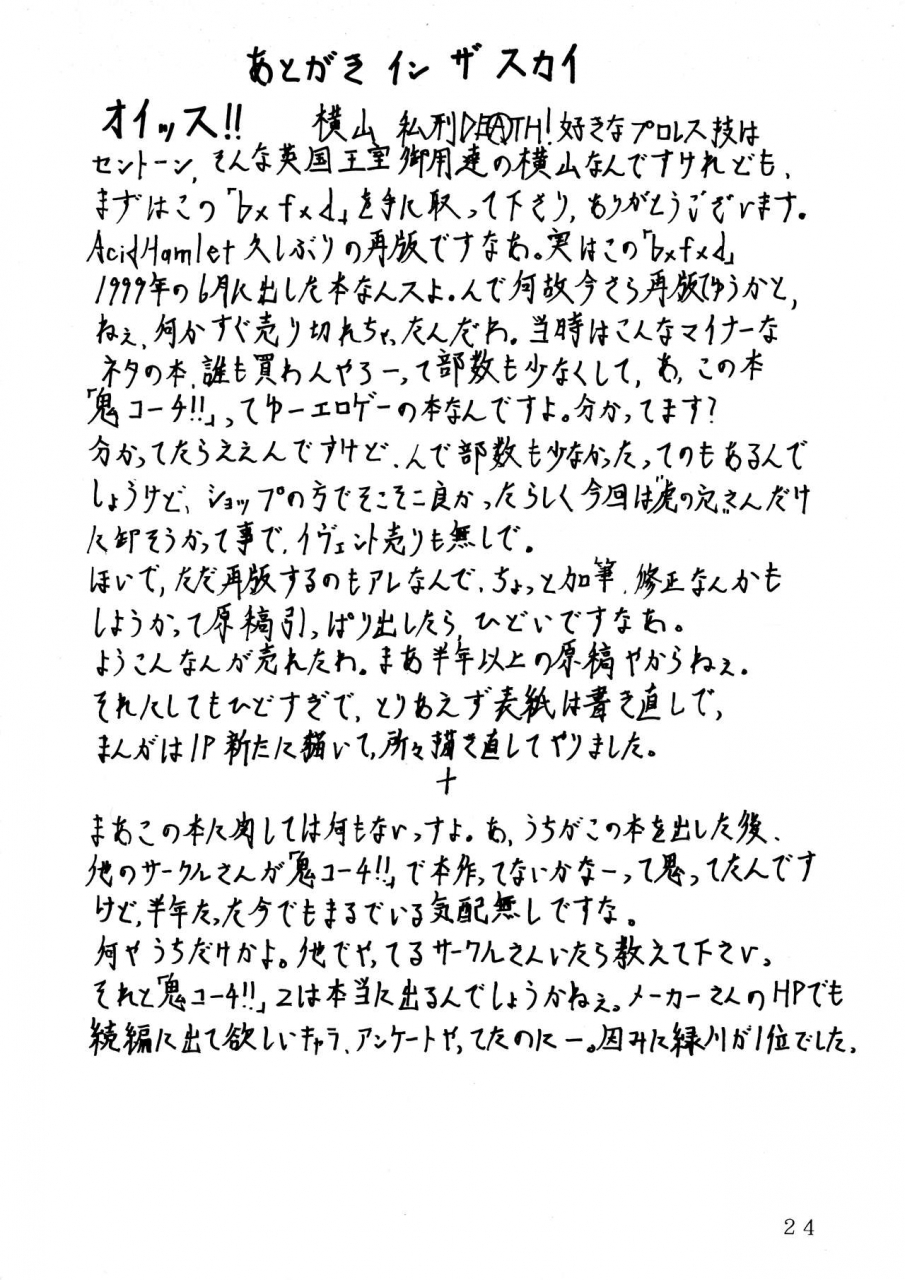 あとがき イン ザ スカイ
オイッス!! 横山 私刑DEATH!好きなプロレス技は
セントーン,そんな英国王室御用達の横山なんですけれども、
まずはこの「bxfxd」を手に取って下さり,ありがとうございます。
AcidHamlet 久しぶりの再版ですなあ。実はこの「bxfxd」
1999年の6月に出した本なんスよ。んで何故今さら再版てゆうかと,
ねぇ、何かすぐ売り切れちゃったんだわ。当時はこんなマイナーな
ネタの本、誰も買わんやろーって部数も少なくして,あ,この本
「鬼コーチ!!」ってゆーエロゲーの本なんですよ。分かってます?
分かってたらええんですけど、んで部数も少なかったってのもあるんで
しょうけど、ショップの方でそこそこ良かったらしく今回は"虎の穴"さんだけ
に卸そうかって事で、イヴェント売りも無しで。
ほいで,ただ再版するのもアレなんで、ちょっと加筆、修正なんかも
しようかって原稿引っぱり出したら,ひどいですなあ。
ようこんなんが売れたわ。まあ半年以上の原稿やからねぇ。
それにしてもひどすぎで,とりあえず表紙は書き直しで,
まんがは1P新たに描いて,所々描き直してやりました。
+
まあこの本に関しては何もないっすよ。あ,うちがこの本を出した後、
他のサークルさんが「鬼コーチ!!」で本作ってないかなーって思ってたんです
けど,半年たった今でもまるでいる気配無しですな。
何やうちだけかよ。他でやってるサークルさんいたら教えて下さい。
それと「鬼コーチ!!」2は本当に出るんでしょうかねぇ。メーカーさんのHPでも
続編に出て欲しいキャラ、アンケートやってたのにー。因みに緑川が1位でした。
24